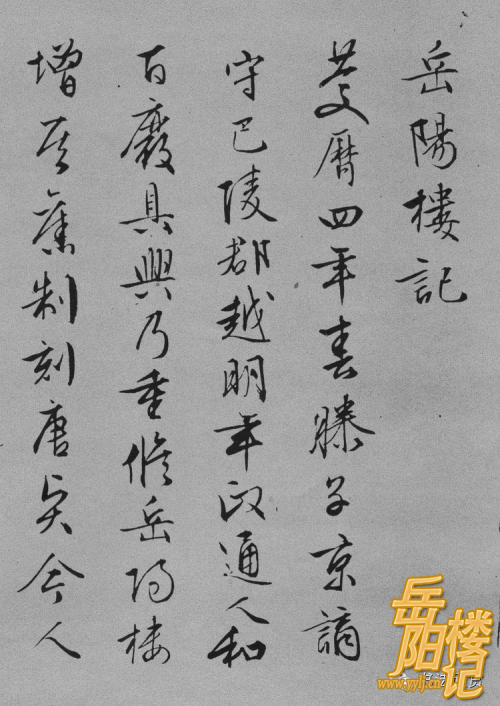 岳陽樓記
慶曆四年春滕子京謫
守巴陵郡越明年政通人和
百廢具興乃重修岳陽樓
增其舊制刻唐贤今人
岳阳楼记
www.yylj.cn